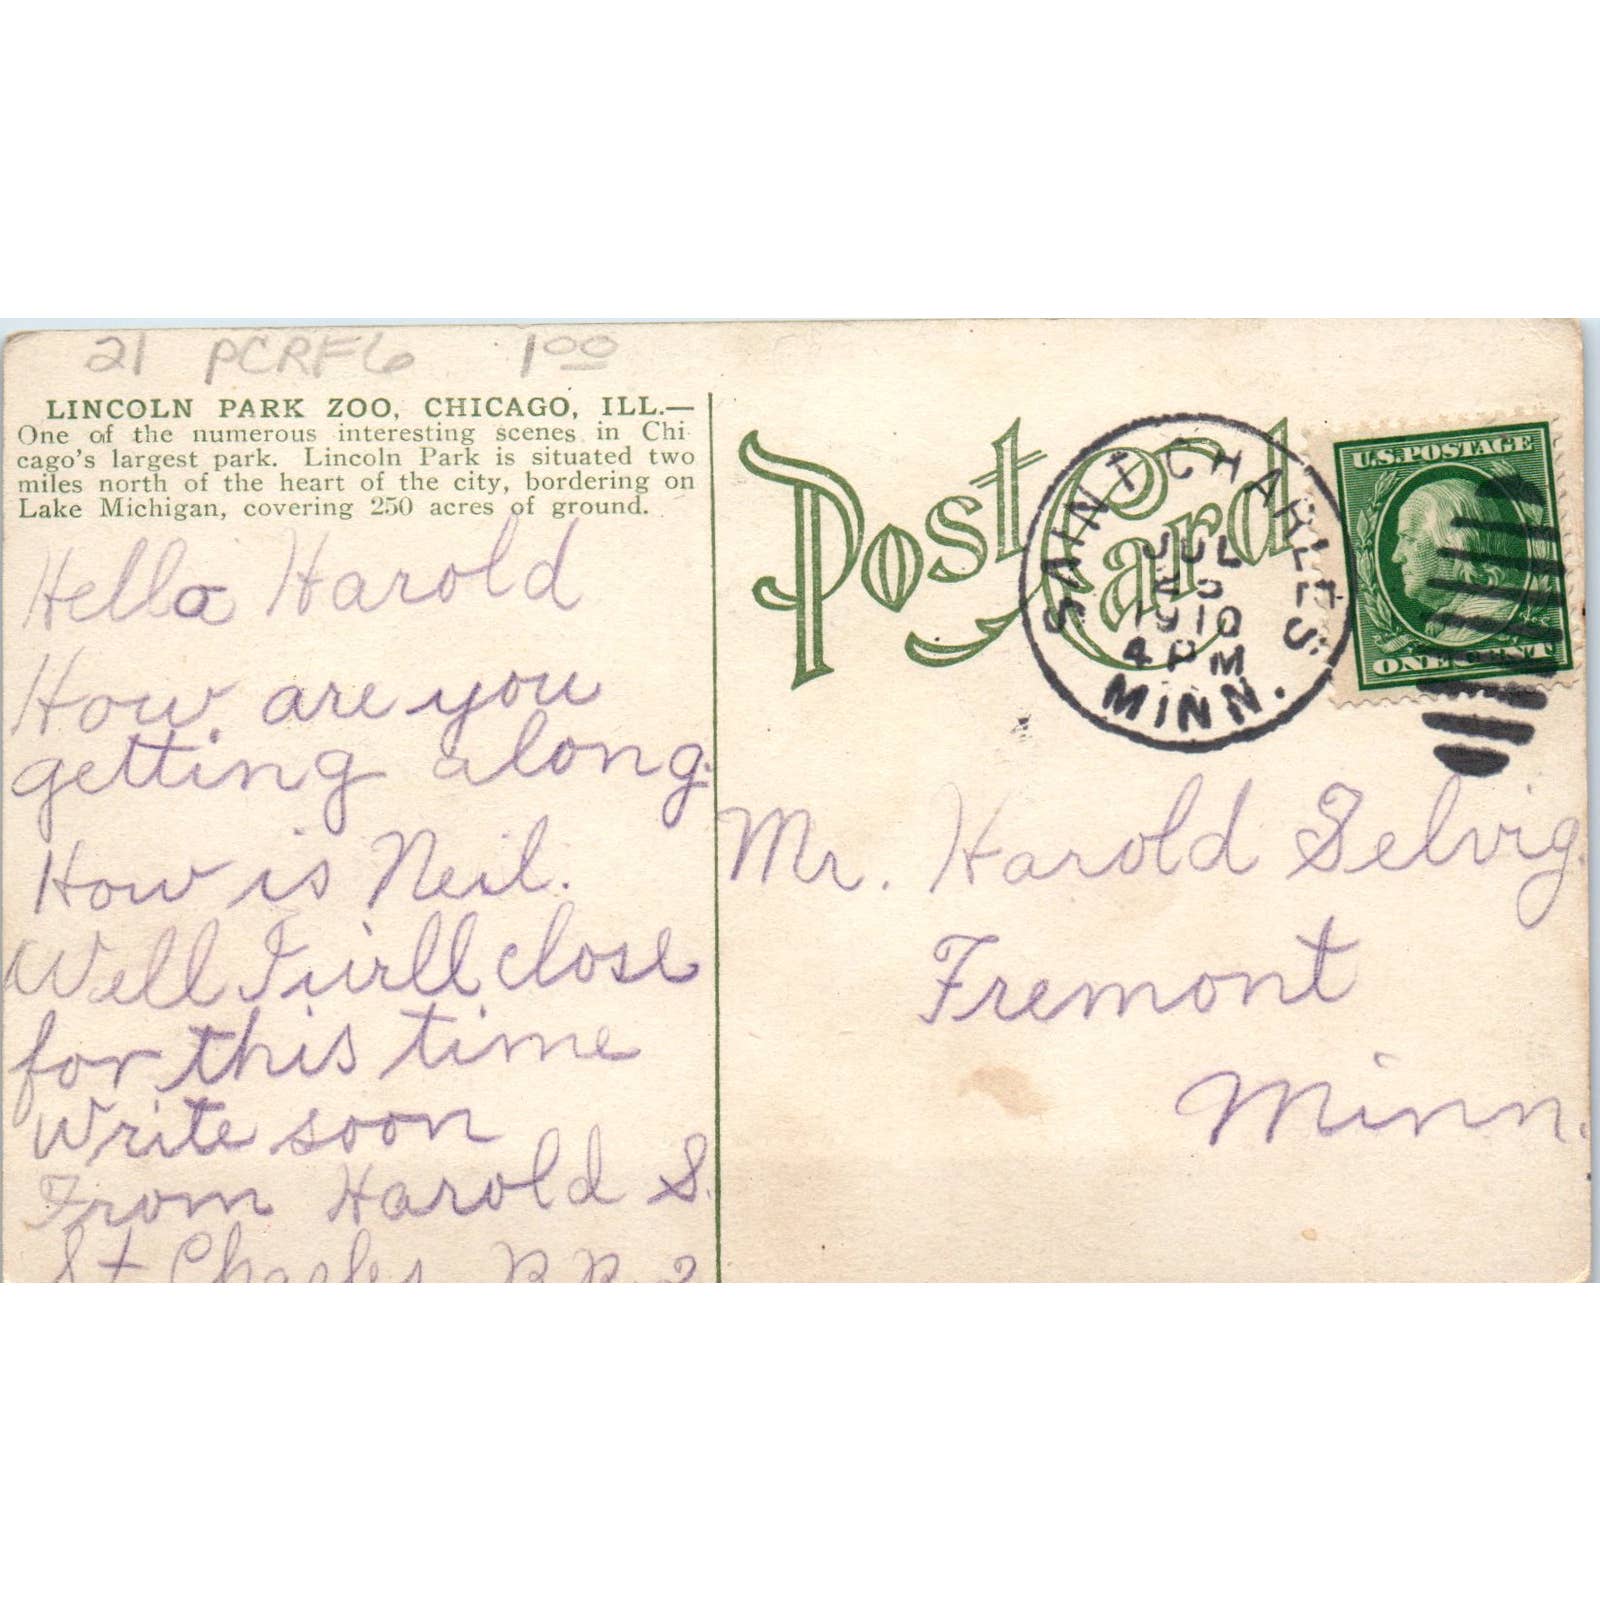 21 PCRF6 1 00
LINCOLN PARK ZOO, CHICAGO, ILL.—
One of the numerous interesting scenes in Chi
cago's largest park. Lincoln Park is situated two
miles north of the heart of the city, bordering on
Lake Michigan, covering 250 acres of ground.
Hello Harold
How are you
getting along.
How is Neil.
Well I will close
for this time
write soon
From Harold S.
St Charles R R 2
Post Card
SAINT CHARLES.
JUL
1910
4 PM
MINN.
U.S. POSTAGE
ONE CENT
Mr. Harold Selvig.
Fremont
Minn.